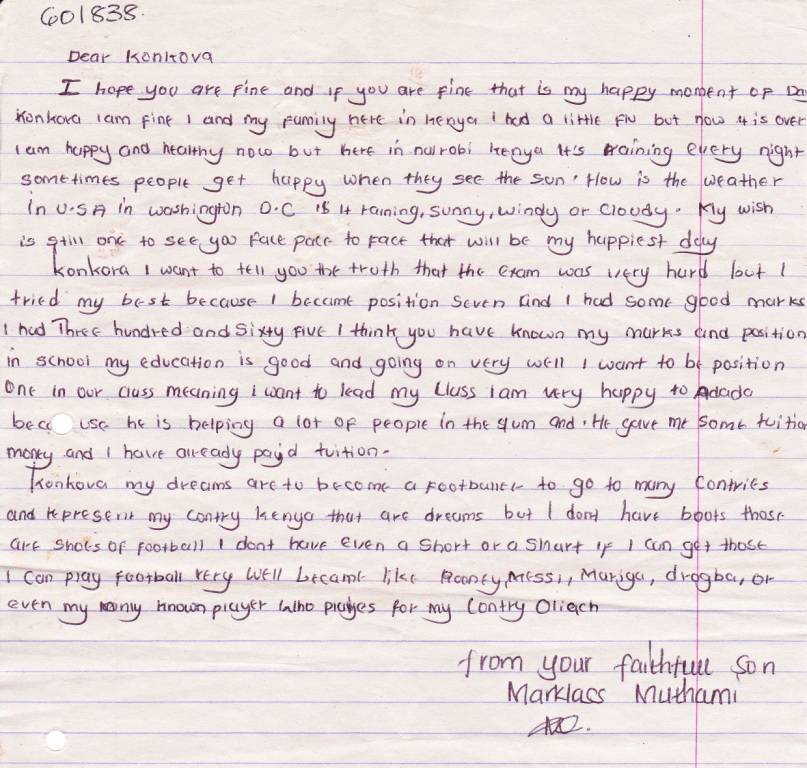 601838.
Dear Konkova
I hope you are fine and if you are fine that is my happy moment of Da
Konkova I am fine I and my family here in kenya I had a little flu but now it is over
I am happy and healthy now but here in nairobi kenya it's raining every night
sometimes people get happy when they see the sun. How is the weather
in U.S.A in washington D.C is it raining, sunny, windy or cloudy. My wish
is still one to see you face pace to face that will be my happiest day
Konkova I want to tell you the truth that the exam was very hard but I
tried my best because I became position seven and I had some good marks
I had Three hundred and Sixty five I think you have known my marks and position
in school my education is good and going on very well I want to be position
One in our class meaning I want to lead my class I am very happy to Adada
because he is helping a lot of people in the slum and. He gave me some tuition
money and I have already payd tuition.
Konkova my dreams are to become a footballer to go to many contries
and represent my contry kenya that are dreams but I dont have boots those
are shoes of football I dont have even a short or a shirt if I can get those
I can play football very well became like Rooney, Messi, Mariga, drogba, or
even my known player who playes for my contry Oliech
from your faithfull son
Marklass Muthami